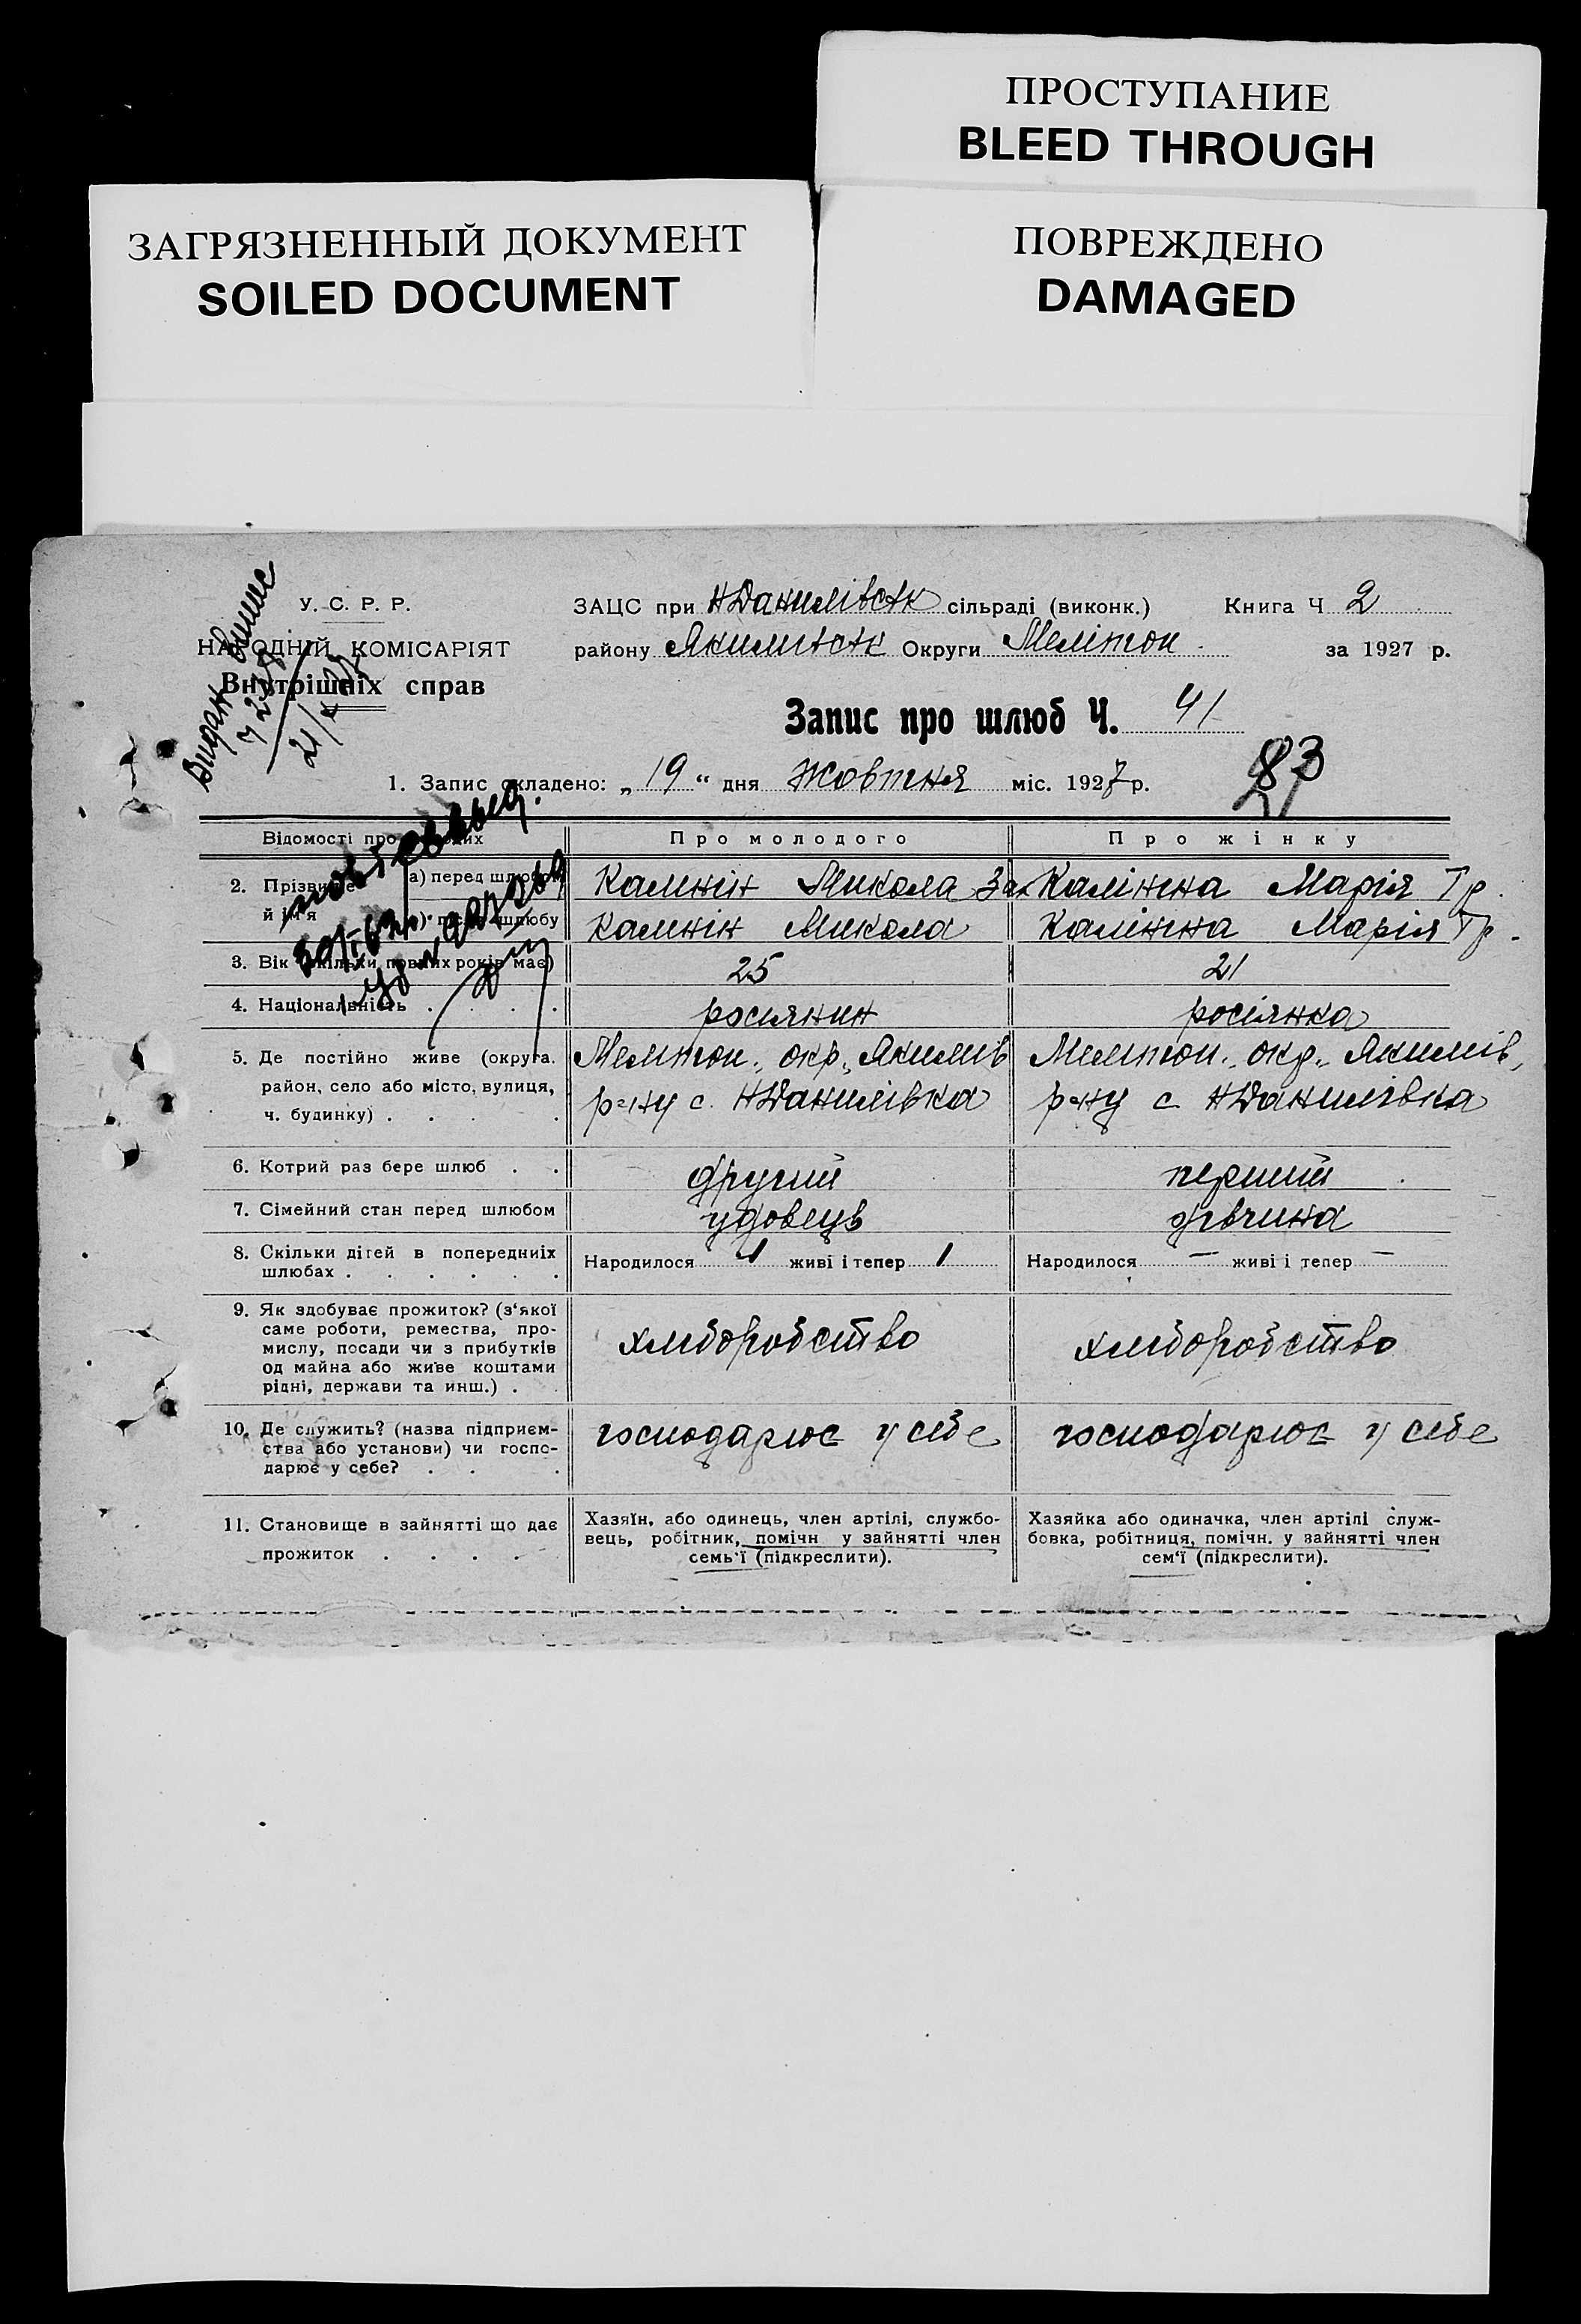 ПРОСТУПАНИЕ
BLEED THROUGH
ЗАГРЯЗНЕННЫЙ ДОКУМЕНТ
SOILED DOCUMENT
ПОВРЕЖДЕНО
DAMAGED
У. С. Р. Р.
НАРОДНІЙ КОМІСАРІЯТ
Внутрішніх справ
ЗАЦС при НДанилівськ сільраді (виконк.) Книга Ч 2
району Якимівськ Округи Мелітоп. за 1927 р.
Запис про шлюб Ч. 41
83
1. Запис складено: „19“ дня Жовтня міс. 1927 р.
Відомості про
Про молодого
Про жінку
2. Прізвище й ім'я
а) перед шлюбом
Калінін Микола Зах
Калініна Марія Гр.
після шлюбу
Калінін Микола
Калініна Марія Гр.
3. Вік (скільки повних років має)
25
21
4. Національність . . . .
росіянин
росіянка
5. Де постійно живе (округа,
район, село або місто, вулиця,
ч. будинку) . . .
Мелітоп. окр. Якимів
р-ну с. НДанилівка
Мелітоп. окр. Якимів,
р-ну с НДанилівка
6. Котрий раз бере шлюб . .
другий
перший
7. Сімейний стан перед шлюбом
удовець
дівчина
8. Скільки дітей в попередніх
шлюбах . . . . . .
Народилося 1 живі і тепер 1
Народилося — живі і тепер —
9. Як здобуває прожиток? (з'якої
саме роботи, ремества, про-
мислу, посади чи з прибутків
од майна або живе коштами
рідні, держави та инш.) .
хліборобство
хліборобство
10. Де служить? (назва підприєм-
ства або установи) чи госпо-
дарює у себе? . . .
господарює у себе
господарює у себе
11. Становище в зайнятті що дає
прожиток . . . .
Хазяїн, або одинець, член артілі, службо-
вець, робітник, помічн у зайнятті член
семь'ї (підкреслити).
Хазяйка або одиначка, член артілі служ-
бовка, робітниця, помічн. у зайнятті член
сем'ї (підкреслити).